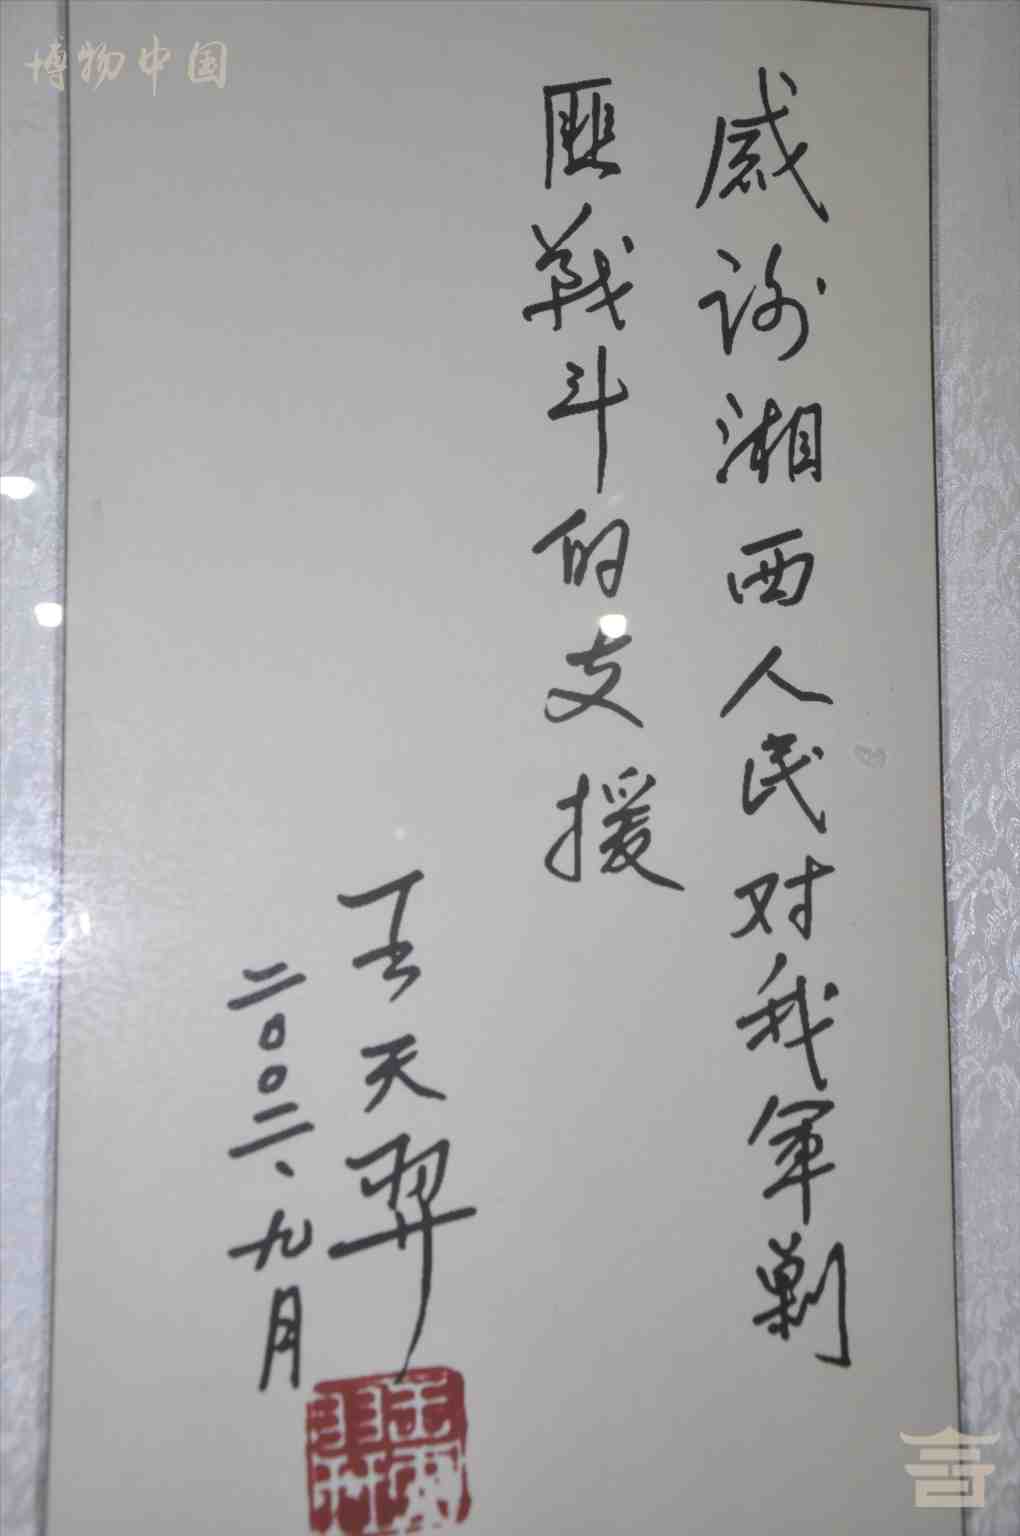 博物中国
感谢湘西人民对我军剿
匪战斗的支援
王天羿
二〇〇二、九月